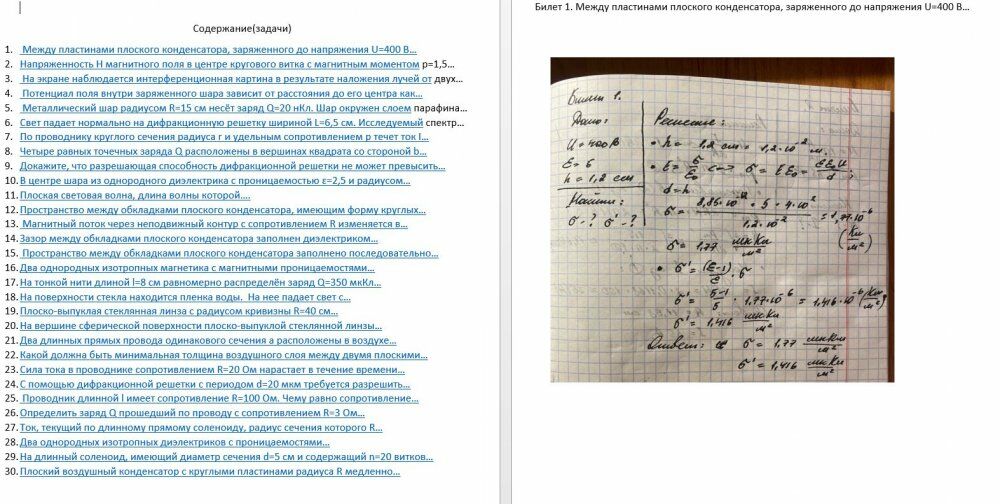 Содержание(задачи)
1. Между пластинами плоского конденсатора, заряженного до напряжения U=400 В…
2. Напряженность H магнитного поля в центре кругового витка с магнитным моментом p=1,5…
3. На экране наблюдается интерференционная картина в результате наложения лучей от двух…
4. Потенциал поля внутри заряженного шара зависит от расстояния до его центра как…
5. Металлический шар радиусом R=15 см несёт заряд Q=20 нКл. Шар окружен слоем парафина…
6. Свет падает нормально на дифракционную решетку шириной L=6,5 см. Исследуемый спектр…
7. По проводнику круглого сечения радиуса r и удельным сопротивлением p течет ток I…
8. Четыре равных точечных заряда Q расположены в вершинах квадрата со стороной b…
9. Докажите, что разрешающая способность дифракционной решетки не может превысить…
10. В центре шара из однородного диэлектрика с проницаемостью ε=2,5 и радиусом…
11. Плоская световая волна, длина волны которой….
12. Пространство между обкладками плоского конденсатора, имеющим форму круглых…
13. Магнитный поток через неподвижный контур с сопротивлением R изменяется в…
14. Зазор между обкладками плоского конденсатора заполнен диэлектриком…
15. Пространство между обкладками плоского конденсатора заполнено последовательно…
16. Два однородных изотропных магнетика с магнитными проницаемостями…
17. На тонкой нити длиной l=8 см равномерно распределён заряд Q=350 мкКл…
18. На поверхности стекла находится пленка воды. На нее падает свет с…
19. Плоско-выпуклая стеклянная линза с радиусом кривизны R=40 см…
20. На вершине сферической поверхности плоско-выпуклой стеклянной линзы…
21. Два длинных прямых провода одинакового сечения a расположены в воздухе…
22. Какой должна быть минимальная толщина воздушного слоя между двумя плоскими…
23. Сила тока в проводнике сопротивлением R=20 Ом нарастает в течение времени…
24. С помощью дифракционной решетки с периодом d=20 мкм требуется разрешить…
25. Проводник длинной l имеет сопротивление R=100 Ом. Чему равно сопротивление…
26. Определить заряд Q прошедший по проводу с сопротивлением R=3 Ом…
27. Ток, текущий по длинному прямому соленоиду, радиус сечения которого R…
28. Два однородных изотропных диэлектриков с проницаемостями…
29. На длинный соленоид, имеющий диаметр сечения d=5 см и содержащий n=20 витков…
30. Плоский воздушный конденсатор с круглыми пластинами радиуса R медленно…
Билет 1. Между пластинами плоского конденсатора, заряженного до напряжения U=400 В…
Билет 1.
Дано:
U = 400В
E = 6
h = 1,2 см
Найти:
σ - ? σ' - ?
Решение:
• h = 1,2 см = 1,2·10⁻² м
• E = σ/ε₀ => σ = E ε₀ = εε₀U/d ;
d = h
σ = 8,85·10⁻¹² · 5 · 4·10² / 1,2·10⁻² = 1,77·10⁻⁶ (Кл/м²)
σ = 1,77 мкКл/м²
• σ' = (ε-1)/ε · σ
σ' = 5-1/5 · 1,77·10⁻⁶ = 1,416·10⁻⁶ (Кл/м²)
σ' = 1,416 мкКл/м²
Ответ: σ = 1,77 мкКл/м²
σ' = 1,416 мкКл/м²